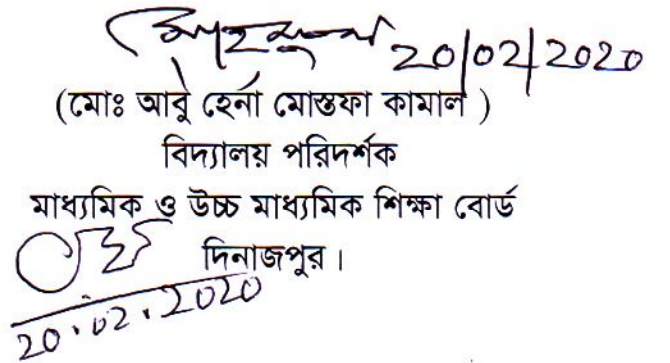 20/02/2020
(মোঃ আবু হেনা মোস্তফা কামাল )
বিদ্যালয় পরিদর্শক
মাধ্যমিক ও উচ্চ মাধ্যমিক শিক্ষা বোর্ড
দিনাজপুর।
20.02.2020